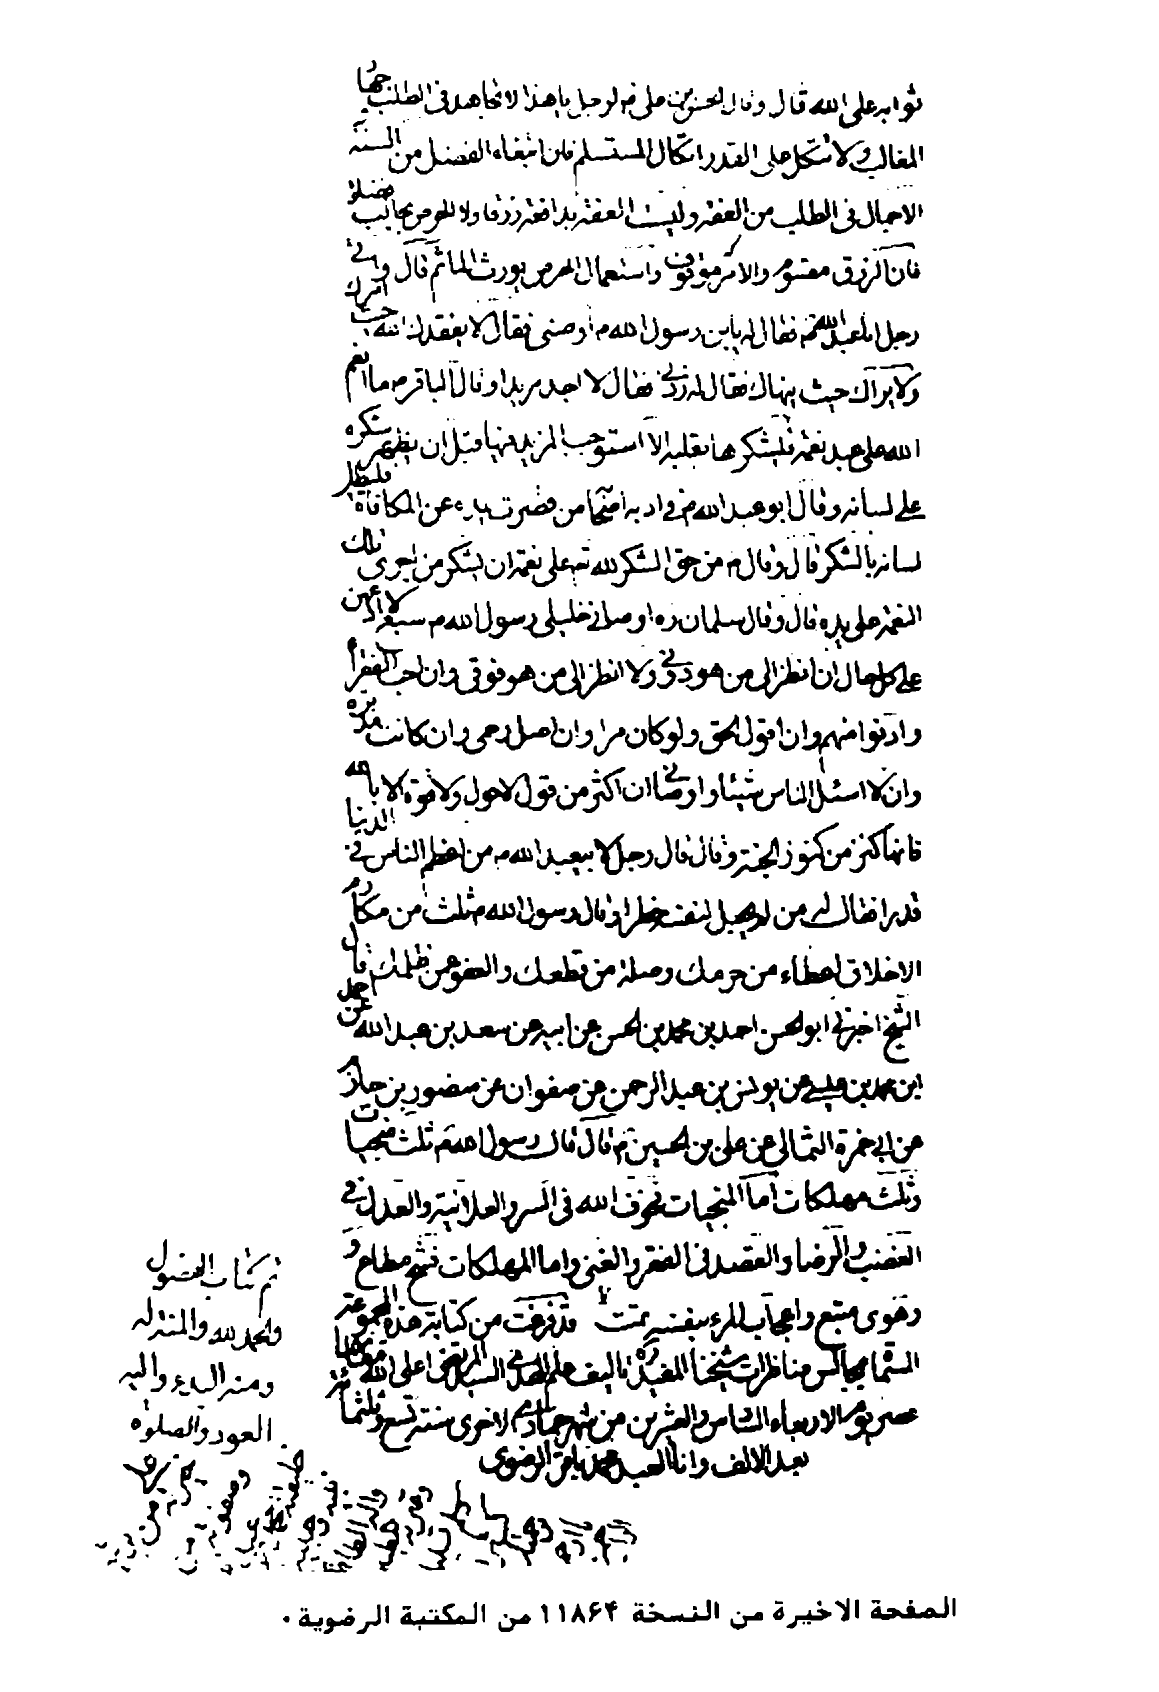 ثوابه على الله قال وقال الحسن بن علي م لرجل يا هذا لا تجاهد في الطلب جهاد
المغالب ولا تتكل على القدر اتكال المستسلم فان ابتغاء الفضل من السنة
الاجمال في الطلب من العفة وليست العفة بدافعة رزقا ولا الحرص بجالب فضلا
فان الرزق مقسوم والامر موقوف واستعمال الحرص يورث المأثم قال واتى
رجل ابا عبد الله م فقال له يابن رسول الله م اوصني فقال لا يفقدك الله حيث امرك
ولا يراك حيث ينهاك فقال له زدني فقال لا اجد مزيدا وقال الباقر م ما انعم
الله على عبد نعمة فليشكرها بقلبه الا استوجب المزيد فيها قبل ان يظهر شكره
على لسانه وقال ابو عبد الله م في ادبه اصحابه من قصرت يده عن المكافاة فليطل
لسانه بالشكر قال وقال م من حق الشكر لله تع على نعمة ان يشكر من اجرى تلك
النعمة على يده قال وقال سلمان ره اوصاني خليلي رسول الله م سبعة لا ادعهن
على كل حال ان انظر الى من هو دوني ولا انظر الى من هو فوقي وان احب الفقراء
وادنوا منهم وان اقول الحق ولو كان مرا وان اصل رحمي وان كانت مدبرة
وان لا اسئل الناس شيئا واوصاني ان اكثر من قول لا حول ولا قوة الا بالله
فانها كنز من كنوز الجنة وقال قال رجل لابي عبد الله م من اعظم الناس في الدنيا
قدرا فقال من لم يجعل لنفسه خطرا قال رسول الله م ثلث من مكارم
الاخلاق اعطاء من حرمك وصلة من قطعك والعفو عمن ظلمك قال
الشيخ اخبرني ابو الحسن احمد بن محمد بن الحسن عن ابيه عن سعد بن عبد الله عن احمد
ابن محمد بن عيسى عن يونس بن عبد الرحمن عن صفوان عن منصور بن حازم
عن ابي حمزة الثمالي عن علي بن الحسين م قال قال رسول الله م ثلث منجيات
وثلث مهلكات اما المنجيات فخوف الله في السر والعلانية والعدل في
الغضب والرضا والقصد في الفقر والغنى واما المهلكات فشح مطاع و
وهوى متبع واعجاب المرء بنفسه تمت قد فرغت من كتابة هذه المجموعة
السماة بمجالس مناظرات شيخنا المفيد ره تاليف علم الهدى السيد المرتضى اعلى الله مقامهما
عصر يوم الاربعاء الثامن والعشرين من شهر جمادى الاخرى سنة تسع وثلثمائة
بعد الالف وانا العبد محمد باقر الرضوي
تم كتاب الفصول
والحمد لله والمنة له
ومنه البدء واليه
العود والصلوة
الصفحة الاخيرة من النسخة ١١٨۶۴ من المكتبة الرضوية .